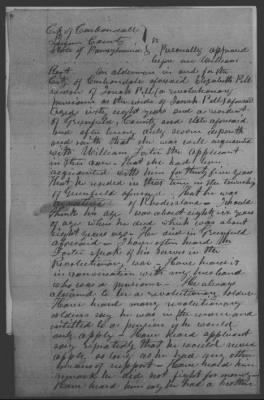 City of Carbondale
Luzerne County } ss
State of Pennsylvania } Personally appeared
before me William
Root an alderman in and for the
City of Carbondale aforesaid Elizabeth Pell
widow of Josiah Pell a revolutionary
pensioner as the widow of Josiah Pell aforesaid
aged sixty eight years and a resident
of Greenfield, County and state aforesaid
and after being duly sworn deposeth
and saith that she was well acquainted
with William Foster the applicant
in this case. That she had been
acquainted with him for thirty five years
That he resided at that time in the township
of Greenfield aforesaid. That he was
of Rhode Island. I would
think his age was about eighty six years
of age when he died which was about
eight years ago. He died in Greenfield
aforesaid. I have often heard Mr
Foster speak of his service in the
Revolutionary war. Have heard him
in conversation with my husband
who was a pensioner. He always
claimed to be a revolutionary soldier
Have heard many revolutionary
soldiers say he was in the war and
entitled to a pension if he would
only apply. Have heard applicant
say repeatedly that he would never
apply, as long as he had any other
means of support. Have heard him
remark he did not fight for money.
Have heard him say he had a brother